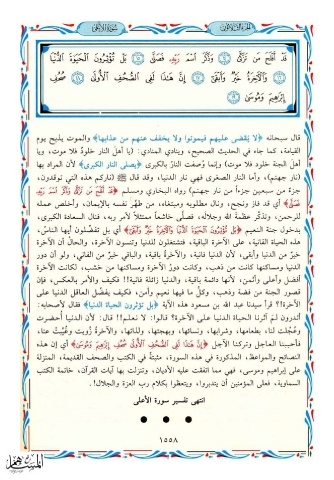 قَدْ أَفْلَحَ مَن تَزَكَّىٰ ١٤ وَذَكَرَ ٱسْمَ رَبِّهِۦ فَصَلَّىٰ ١٥ بَلْ تُؤْثِرُونَ ٱلْحَيَوٰةَ ٱلدُّنْيَا
١٦ وَٱلْـَٔاخِرَةُ خَيْرٌ وَأَبْقَىٰٓ ١٧ إِنَّ هَـٰذَا لَفِى ٱلصُّحُفِ ٱلْأُولَىٰ ١٨ صُحُفِ
إِبْرَٰهِيمَ وَمُوسَىٰ ١٩
قال سبحانه ﴿لا يُقضى عليهم فيموتوا ولا يخفف عنهم من عذابها﴾ والموت يذبح يوم
القيامة، كما جاء في الحديث الصحيح، وينادي المنادي: (يا أهل النار خلودٌ فلا موت، ويا
أهل الجنة خلود فلا موت) وإنما وُصفت النارُ بالكبرى ﴿يصلى النار الكبرى﴾ لأن المراد بها
(نار جهنم)، وأما النار الصغرى فهي نار الدنيا، وقد قال ﷺ (ناركم هذه التي توقدون،
جزء من سبعين جزءاً من نار جهنم) رواه البخاري ومسلم ﴿قَدْ أَفْلَحَ مَن تَزَكَّى وَذَكَرَ اسْمَ رَبِّهِ
فَصَلَّى﴾ أي قد فاز ونجح، ونال مطلوبه ومبتغاه، من طهَّر نفسه بالإيمان، وأخلص عمله
للرحمن، وتذكَّر عظمة الله وجلاله، فصلَّى خاشعاً ممتثلاً لأمر ربه، فنال السعادة الكبرى،
بدخول جنة النعيم ﴿بَلْ تُؤْثِرُونَ الْحَيَوةَ الدُّنْيَا وَالْآخِرَةُ خَيْرٌ وَأَبْقَى﴾ أي بل تفضِّلون أيها الناسُ،
هذه الحياة الفانية، على الآخرة الباقية، فتشتغلون للدنيا وتنسون الآخرة، والحالُ أن الآخرة
خير من الدنيا وأبقى، لأن الدنيا فانية، والآخرة باقية، والباقي خيرٌ من الفاني، ولو أن دور
الدنيا ومساكنها كانت من ذهب، وكانت دورُ الآخرة ومساكنها من خشب، لكانت الآخرة
أفضل وأعلى وأثمن، لأنها دائمة باقية، والدنيا زائلة فانية!! فكيف والأمر بالعكس، فإن
قصور الجنة من فضة وذهب، وكلُّ ما فيها نعيم وأمن، فكيف يفضِّل العاقل الدنيا على
الآخرة؟! قرأ سيدنا عبد الله بن مسعود هذه الآية ﴿بَلْ تُؤْثِرُونَ الحياة الدنيا﴾ فقال لأصحابه:
أتدرون لم آثرنا الحياة الدنيا على الآخرة؟ قالوا: لا نعلم!! قال: لأن الدنيا أُحضرت
وعُجِّلت لنا، بطعامها، وشرابها، ونسائها، وبهجتها، ولذاتها، والآخرة زُويت وغُيِّبتْ عنا،
فأحببنا العاجل وتركنا الآجل ﴿إِنَّ هَذَا لَفِي الصُّحُفِ الْأُولَى صُحُفِ إِبْرَاهِيمَ وَمُوسَى﴾ أي إن هذه
النصائح والمواعظ، المذكورة في هذه السورة، مثبتةٌ في الكتب والصحف القديمة، المنزلة
على إبراهيم وموسى، فهي مما اتفقت عليه الأديان، وتنزلت بها آيات القرآن، خاتمة الكتب
السماوية، فعلى المؤمنين أن يتدبروا، ويتعظوا بكلام رب العزة والجلال!.
انتهى تفسير سورة الأعلى
١٥٥٨